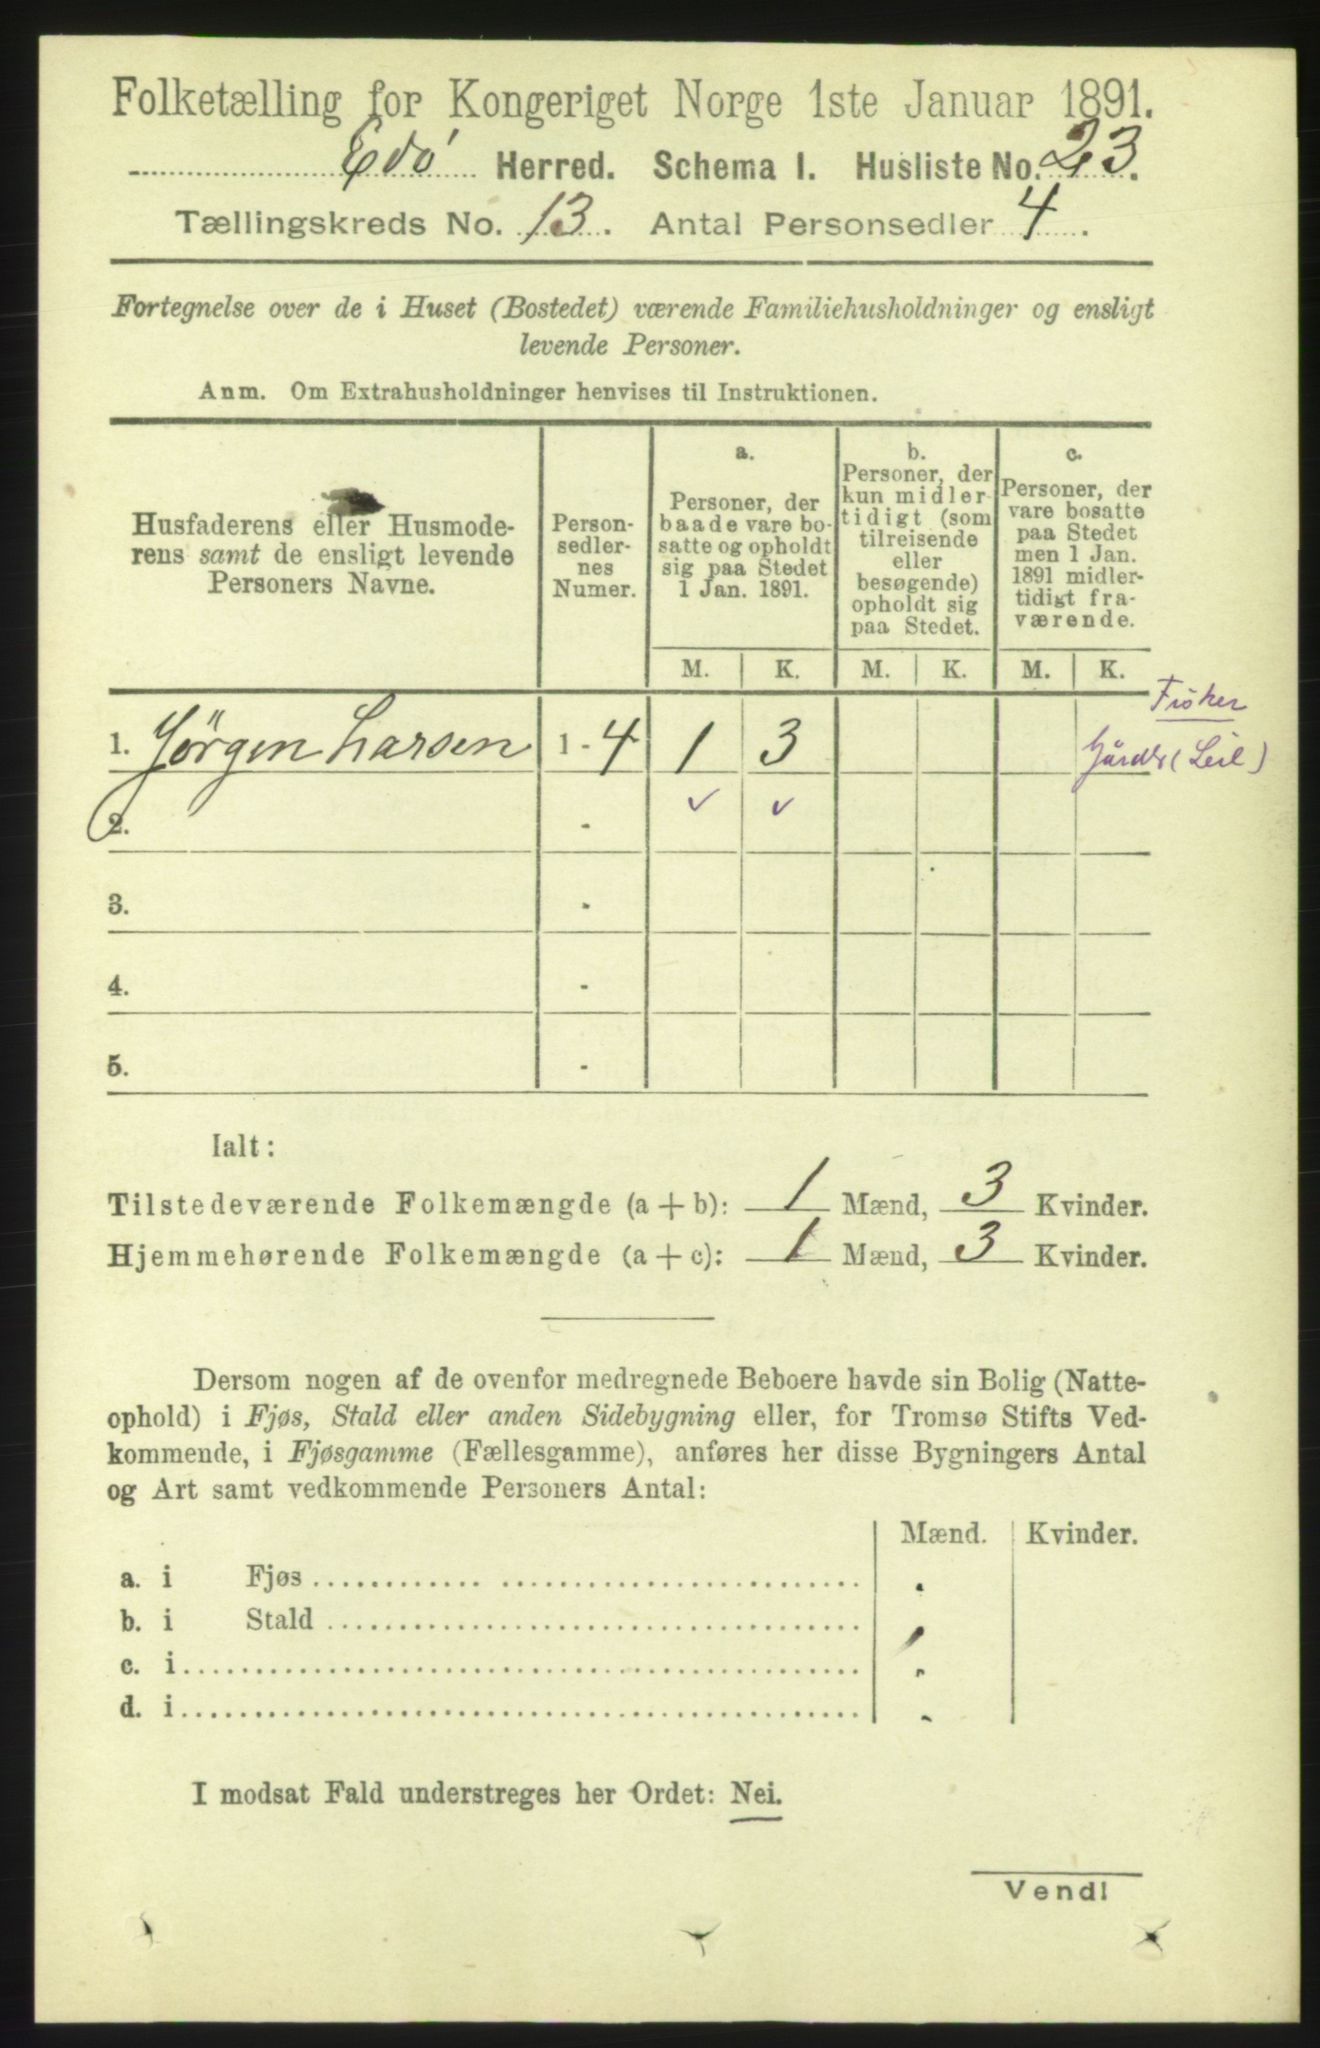 Folketælling for Kongeriget Norge 1ste Januar 1891.
Edö Herred. Schema I. Husliste No. 23.
Tællingskreds No. 13. Antal Personsedler 4.
Fortegnelse over de i Huset (Bostedet) værende Familiehusholdninger og ensligt
levende Personer.
Anm. Om Extrahusholdninger henvises til Instruktionen.
Husfaderens eller Husmode-
rens samt de ensligt levende
Personers Navne.
Person-
sedler-
nes
Numer.
a.
Personer, der
baade vare bo-
satte og opholdt
sig paa Stedet
1 Jan. 1891.
b.
Personer, der
kun midler-
tidigt (som
tilreisende
eller
besøgende)
opholdt sig
paa Stedet.
c.
Personer, der
vare bosatte
paa Stedet
men 1 Jan.
1891 midler-
tidigt fra-
værende.
M. K. M. K. M. K.
Fisker
1. Jörgen Larsen 1 - 4 1 3
Gårdb (Leil)
2. - ✓ ✓
3. -
4. -
5. -
Ialt:
Tilstedeværende Folkemængde (a + b): 1 Mænd, 3 Kvinder.
Hjemmehørende Folkemængde (a + c): 1 Mænd, 3 Kvinder.
Dersom nogen af de ovenfor medregnede Beboere havde sin Bolig (Natte-
ophold) i Fjøs, Stald eller anden Sidebygning eller, for Tromsø Stifts Ved-
kommende, i Fjøsgamme (Fællesgamme), anføres her disse Bygningers Antal
og Art samt vedkommende Personers Antal:
Mænd. Kvinder.
a. i Fjøs
b. i Stald
c. i
d. i
I modsat Fald understreges her Ordet: Nei.
Vend!